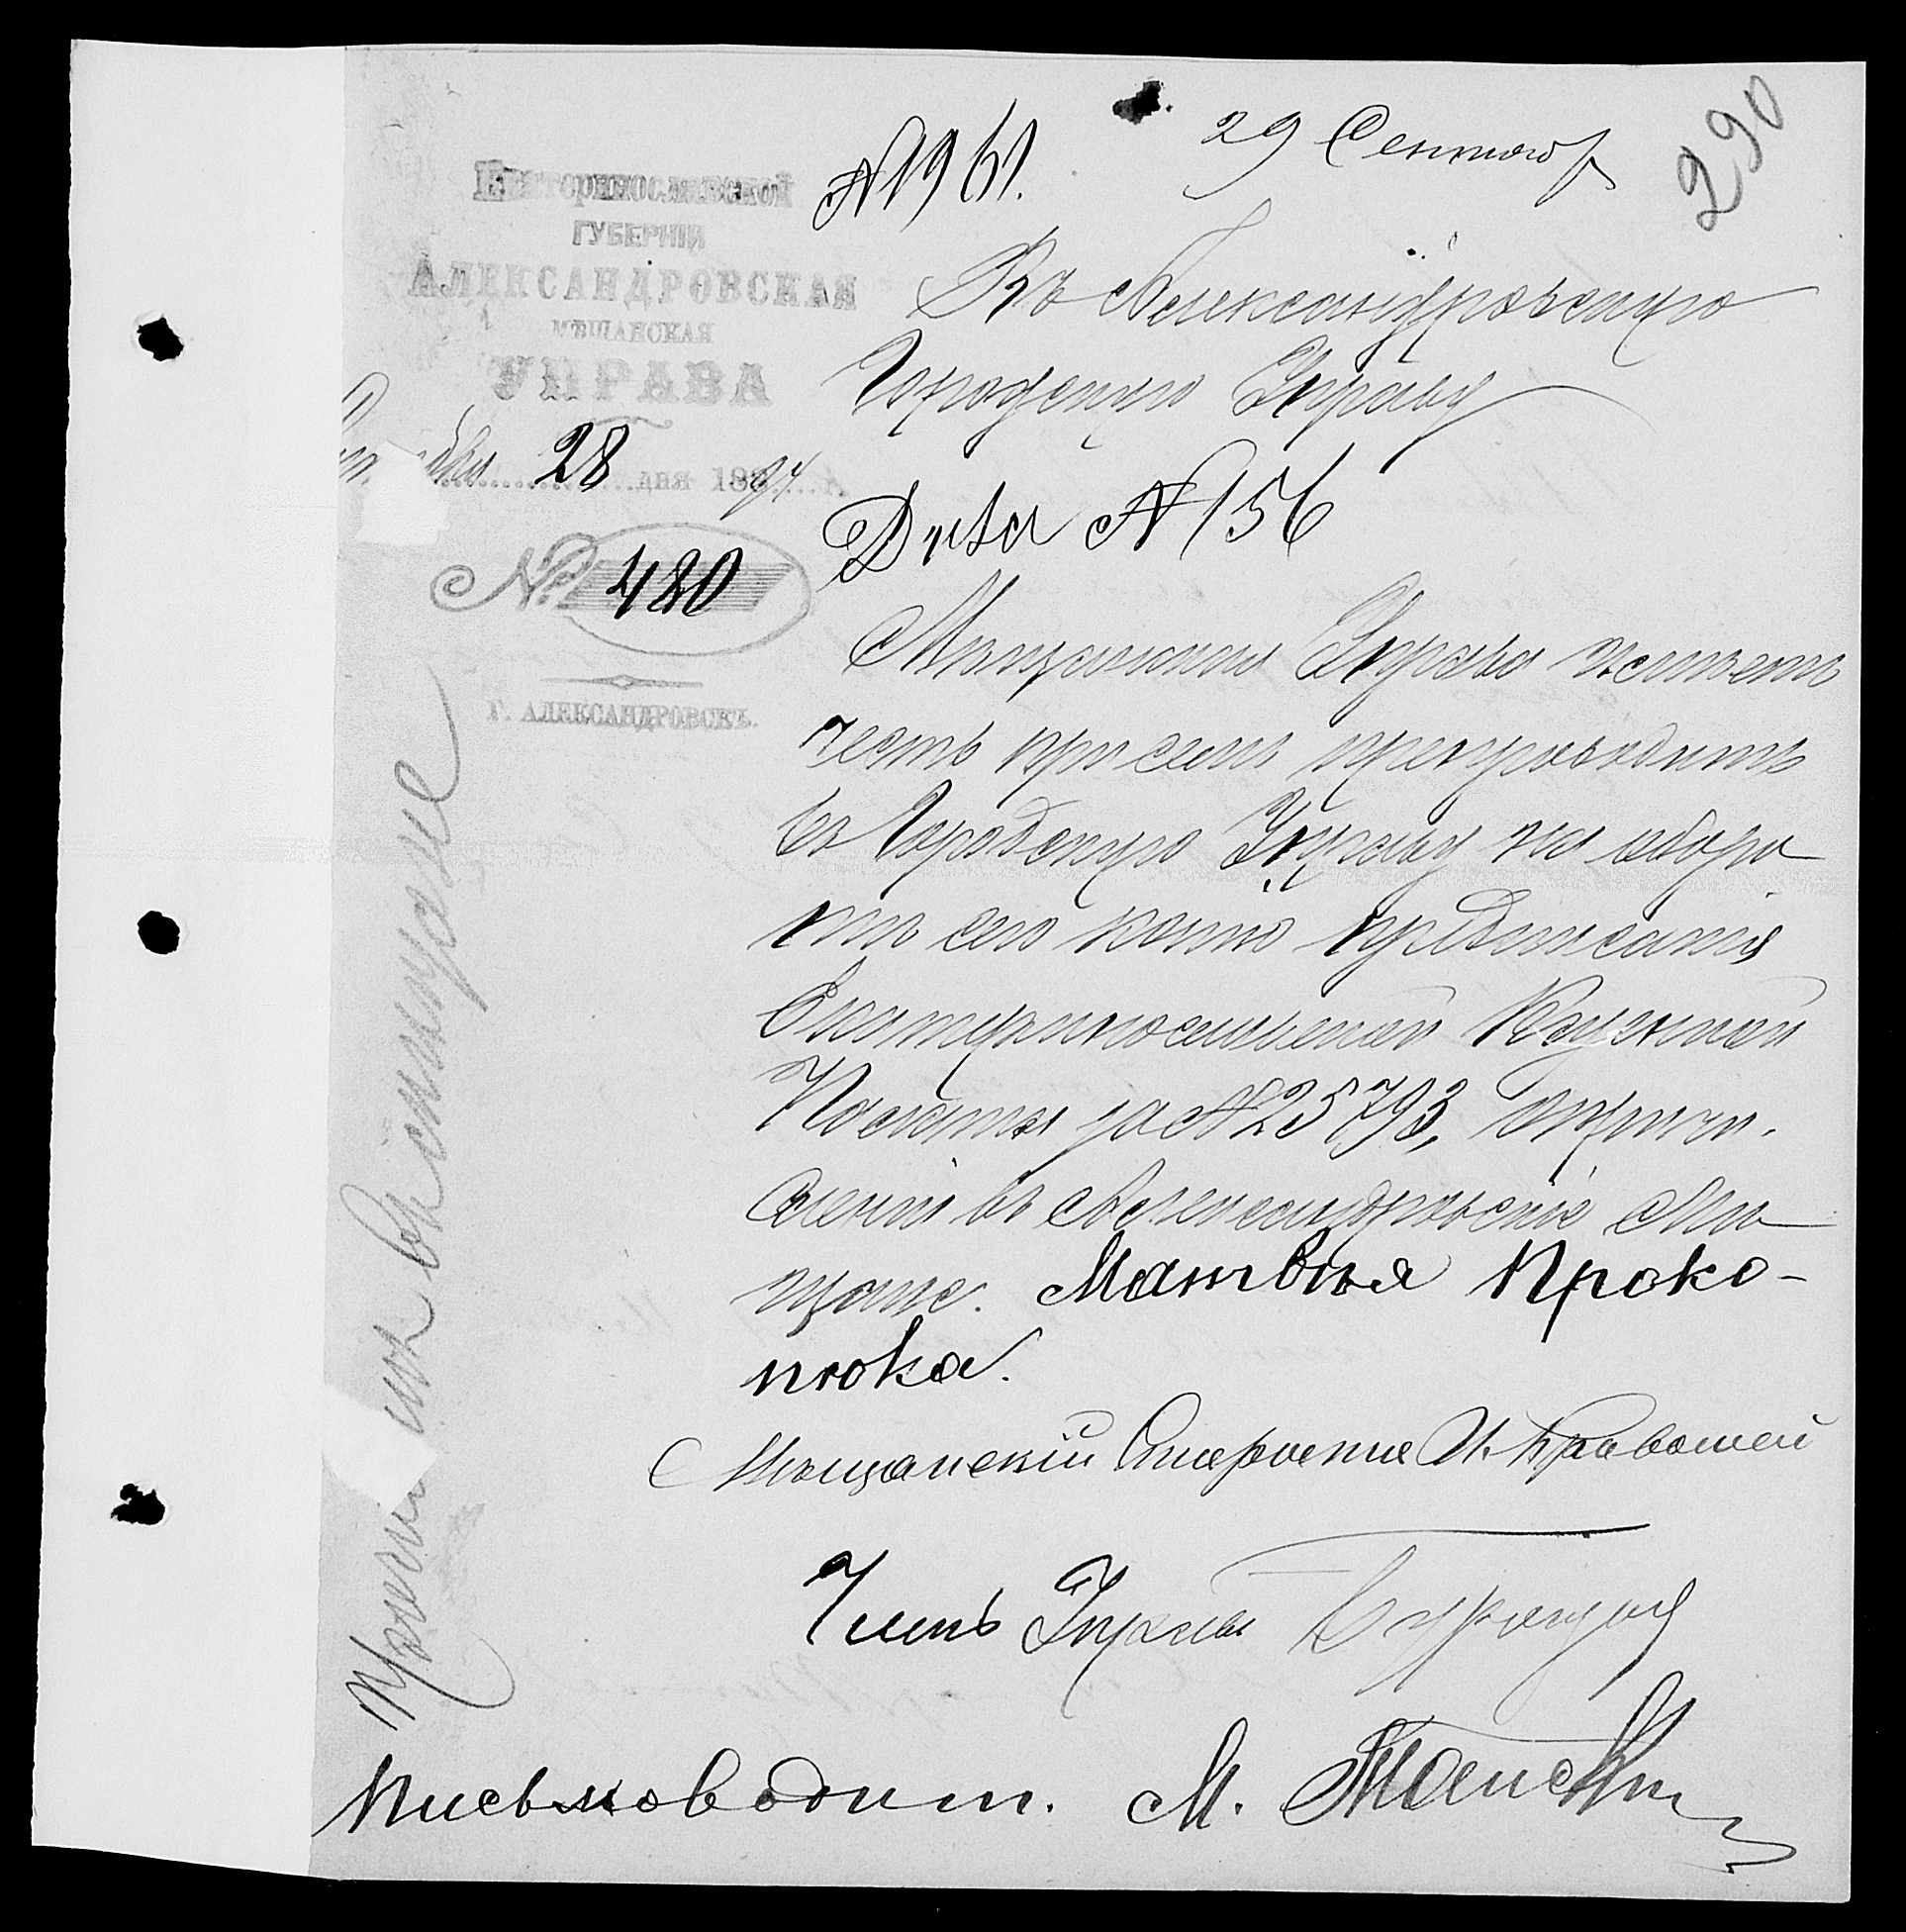 290
29 Сентяб
№1961.
Екатеринославской
ГУБЕРНІИ
АЛЕКСАНДРОВСКАЯ
МѢЩАНСКАЯ
УПРАВА
28 дня 1894 г.
№ 480
Г. АЛЕКСАНДРОВСКЪ.
Въ Александровскую
Городскую Управу
Дѣла №156
Мѣщанская Управа имѣетъ
честь при семъ препроводить
въ Городскую Управу на оборо-
тѣ сего копію предписанія
Екатеринославской Казенной
Палаты за №25793, о причи-
сленіи въ Александровскіе Мѣ-
щане. Матвѣя Проко-
пюка.
Мѣщанскій Староста И. Кравошей
Членъ Управы
Письмоводит. М.